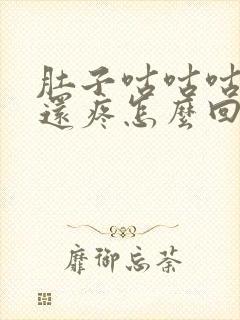 肚子咕咕咕
還疼怎麼回
靡御忘荼